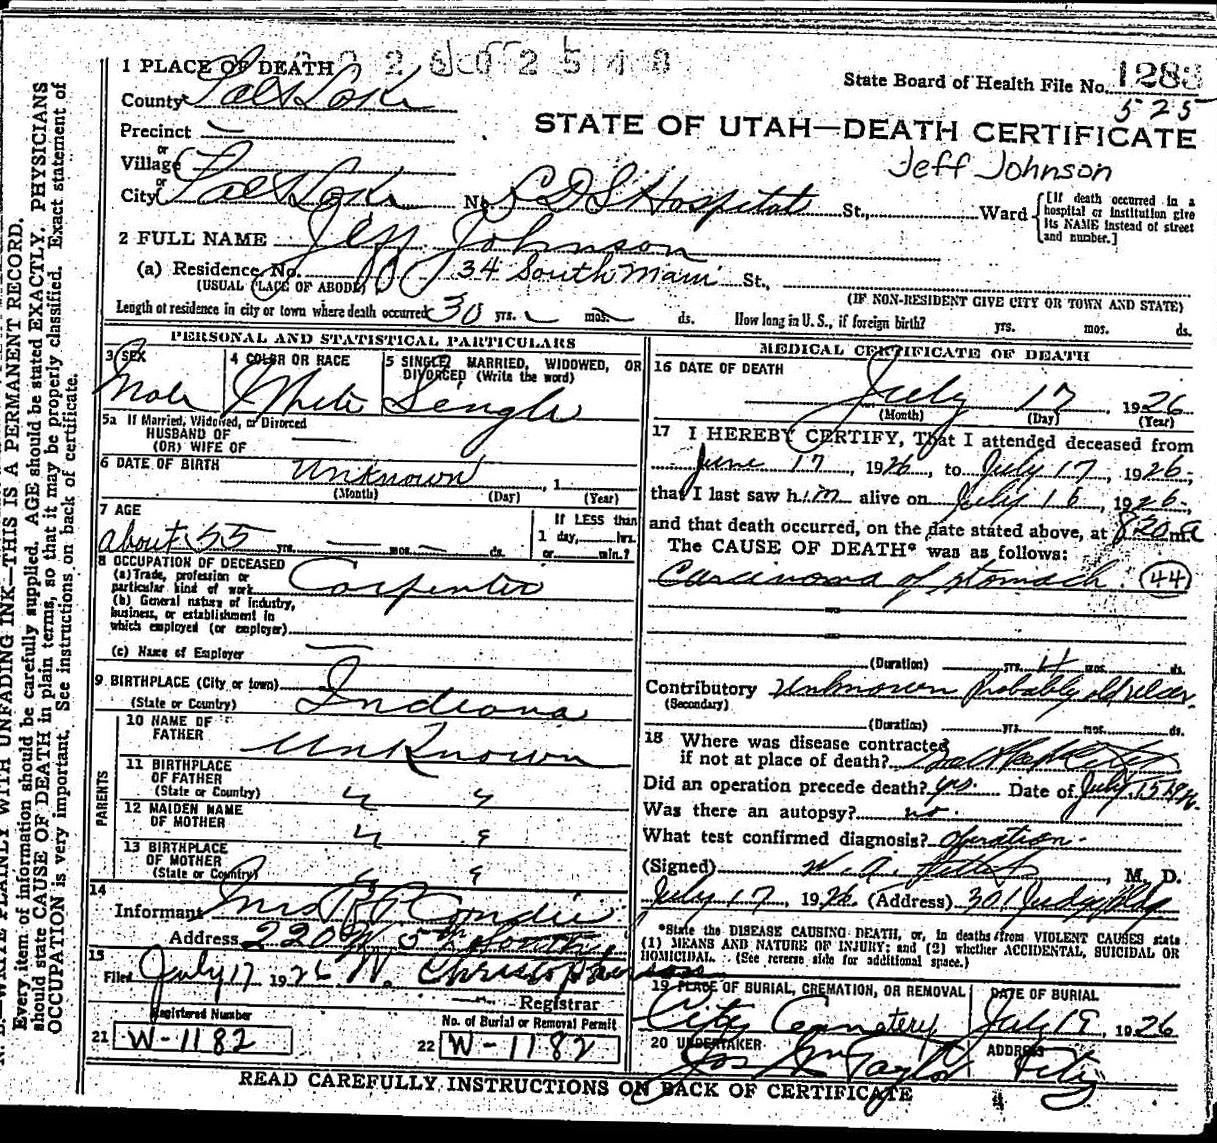 1 PLACE OF DEATH
State Board of Health File No. 1283
525
County Salt Lake
Precinct —
STATE OF UTAH—DEATH CERTIFICATE
Jeff Johnson
or
Village
or
City Salt Lake No. LDS Hospital St., Ward [If death occurred in a hospital or institution give its NAME instead of street and number.]
2 FULL NAME Jeff Johnson
(a) Residence No. 34 South Main St.,
(USUAL PLACE OF ABODE) (IF NON-RESIDENT GIVE CITY OR TOWN AND STATE)
Length of residence in city or town where death occurred 30 yrs. — mos. — ds. How long in U. S., if foreign birth? yrs. mos. ds.
PERSONAL AND STATISTICAL PARTICULARS
3 SEX
Male
4 COLOR OR RACE
White
5 SINGLE, MARRIED, WIDOWED, OR DIVORCED (Write the word)
Single
5a If Married, Widowed, or Divorced
HUSBAND OF
(OR) WIFE OF —
6 DATE OF BIRTH Unknown, 1
(Month) (Day) (Year)
7 AGE
about 55 yrs. — mos. — ds.
If LESS than
1 day, hrs.
or min.?
8 OCCUPATION OF DECEASED
(a) Trade, profession or
particular kind of work Carpenter
(b) General nature of industry,
business, or establishment in
which employed (or employer)
(c) Name of Employer —
9 BIRTHPLACE (City or town)
(State or Country) Indiana
PARENTS
10 NAME OF
FATHER Unknown
11 BIRTHPLACE
OF FATHER
(State or Country) " "
12 MAIDEN NAME
OF MOTHER " "
13 BIRTHPLACE
OF MOTHER
(State or Country) " "
14
Informant Mrs R P Condie
Address 220 W 5th South
15
Filed July 17 1926 W. Christopherson
Registrar
Registered Number
21 W-1182
No. of Burial or Removal Permit
22 W-1182
MEDICAL CERTIFICATE OF DEATH
16 DATE OF DEATH
July 17, 1926
(Month) (Day) (Year)
17 I HEREBY CERTIFY, That I attended deceased from
June 17, 1926, to July 17, 1926,
that I last saw him alive on July 16, 1926,
and that death occurred, on the date stated above, at 820 m a
The CAUSE OF DEATH* was as follows:
Carcinoma of stomach. (44)
(Duration) yrs. 4 mos. ds.
Contributory Unknown probably old ulcer.
(Secondary)
(Duration) yrs. mos. ds.
18 Where was disease contracted
if not at place of death?
Did an operation precede death? yes. Date of July 15 1926.
Was there an autopsy? no.
What test confirmed diagnosis? operation.
(Signed) W. A. , M. D.
July 17, 1926 (Address) 301 Judge Bldg
*State the DISEASE CAUSING DEATH, or, in deaths from VIOLENT CAUSES state
(1) MEANS AND NATURE OF INJURY; and (2) whether ACCIDENTAL, SUICIDAL OR
HOMICIDAL. (See reverse side for additional space.)
19 PLACE OF BURIAL, CREMATION, OR REMOVAL
City Cemetery
DATE OF BURIAL
July 19, 1926
20 UNDERTAKER
Jos Wm Taylor
ADDRESS
City
READ CAREFULLY INSTRUCTIONS ON BACK OF CERTIFICATE
WRITE PLAINLY WITH UNFADING INK—THIS IS A PERMANENT RECORD.
Every item of information should be carefully supplied. AGE should be stated EXACTLY. PHYSICIANS
should state CAUSE OF DEATH in plain terms, so that it may be properly classified. Exact statement of
OCCUPATION is very important. See instructions on back of certificate.